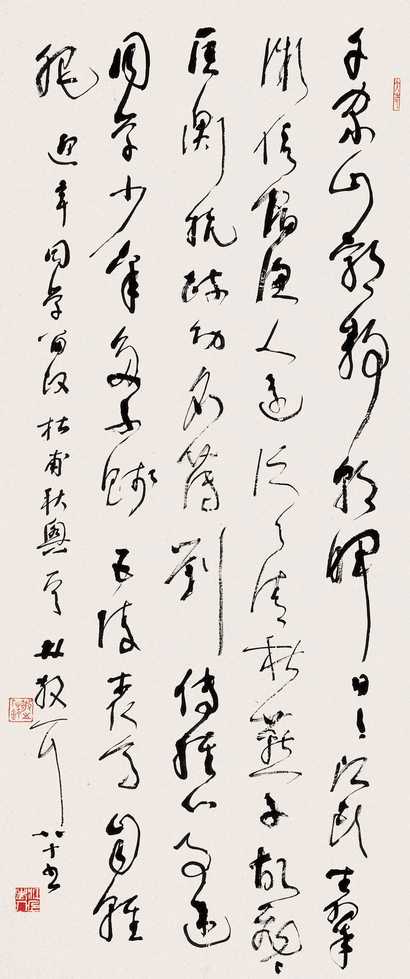 千家山郭靜朝暉日日江樓坐翠
微信宿漁人還泛泛清秋燕子故飛飛
匡衡抗疏功名薄劉傳經心事違
同学少年多不賤五陵衣馬自輕
肥 年同学 杜甫秋興一首 林散耳 八十